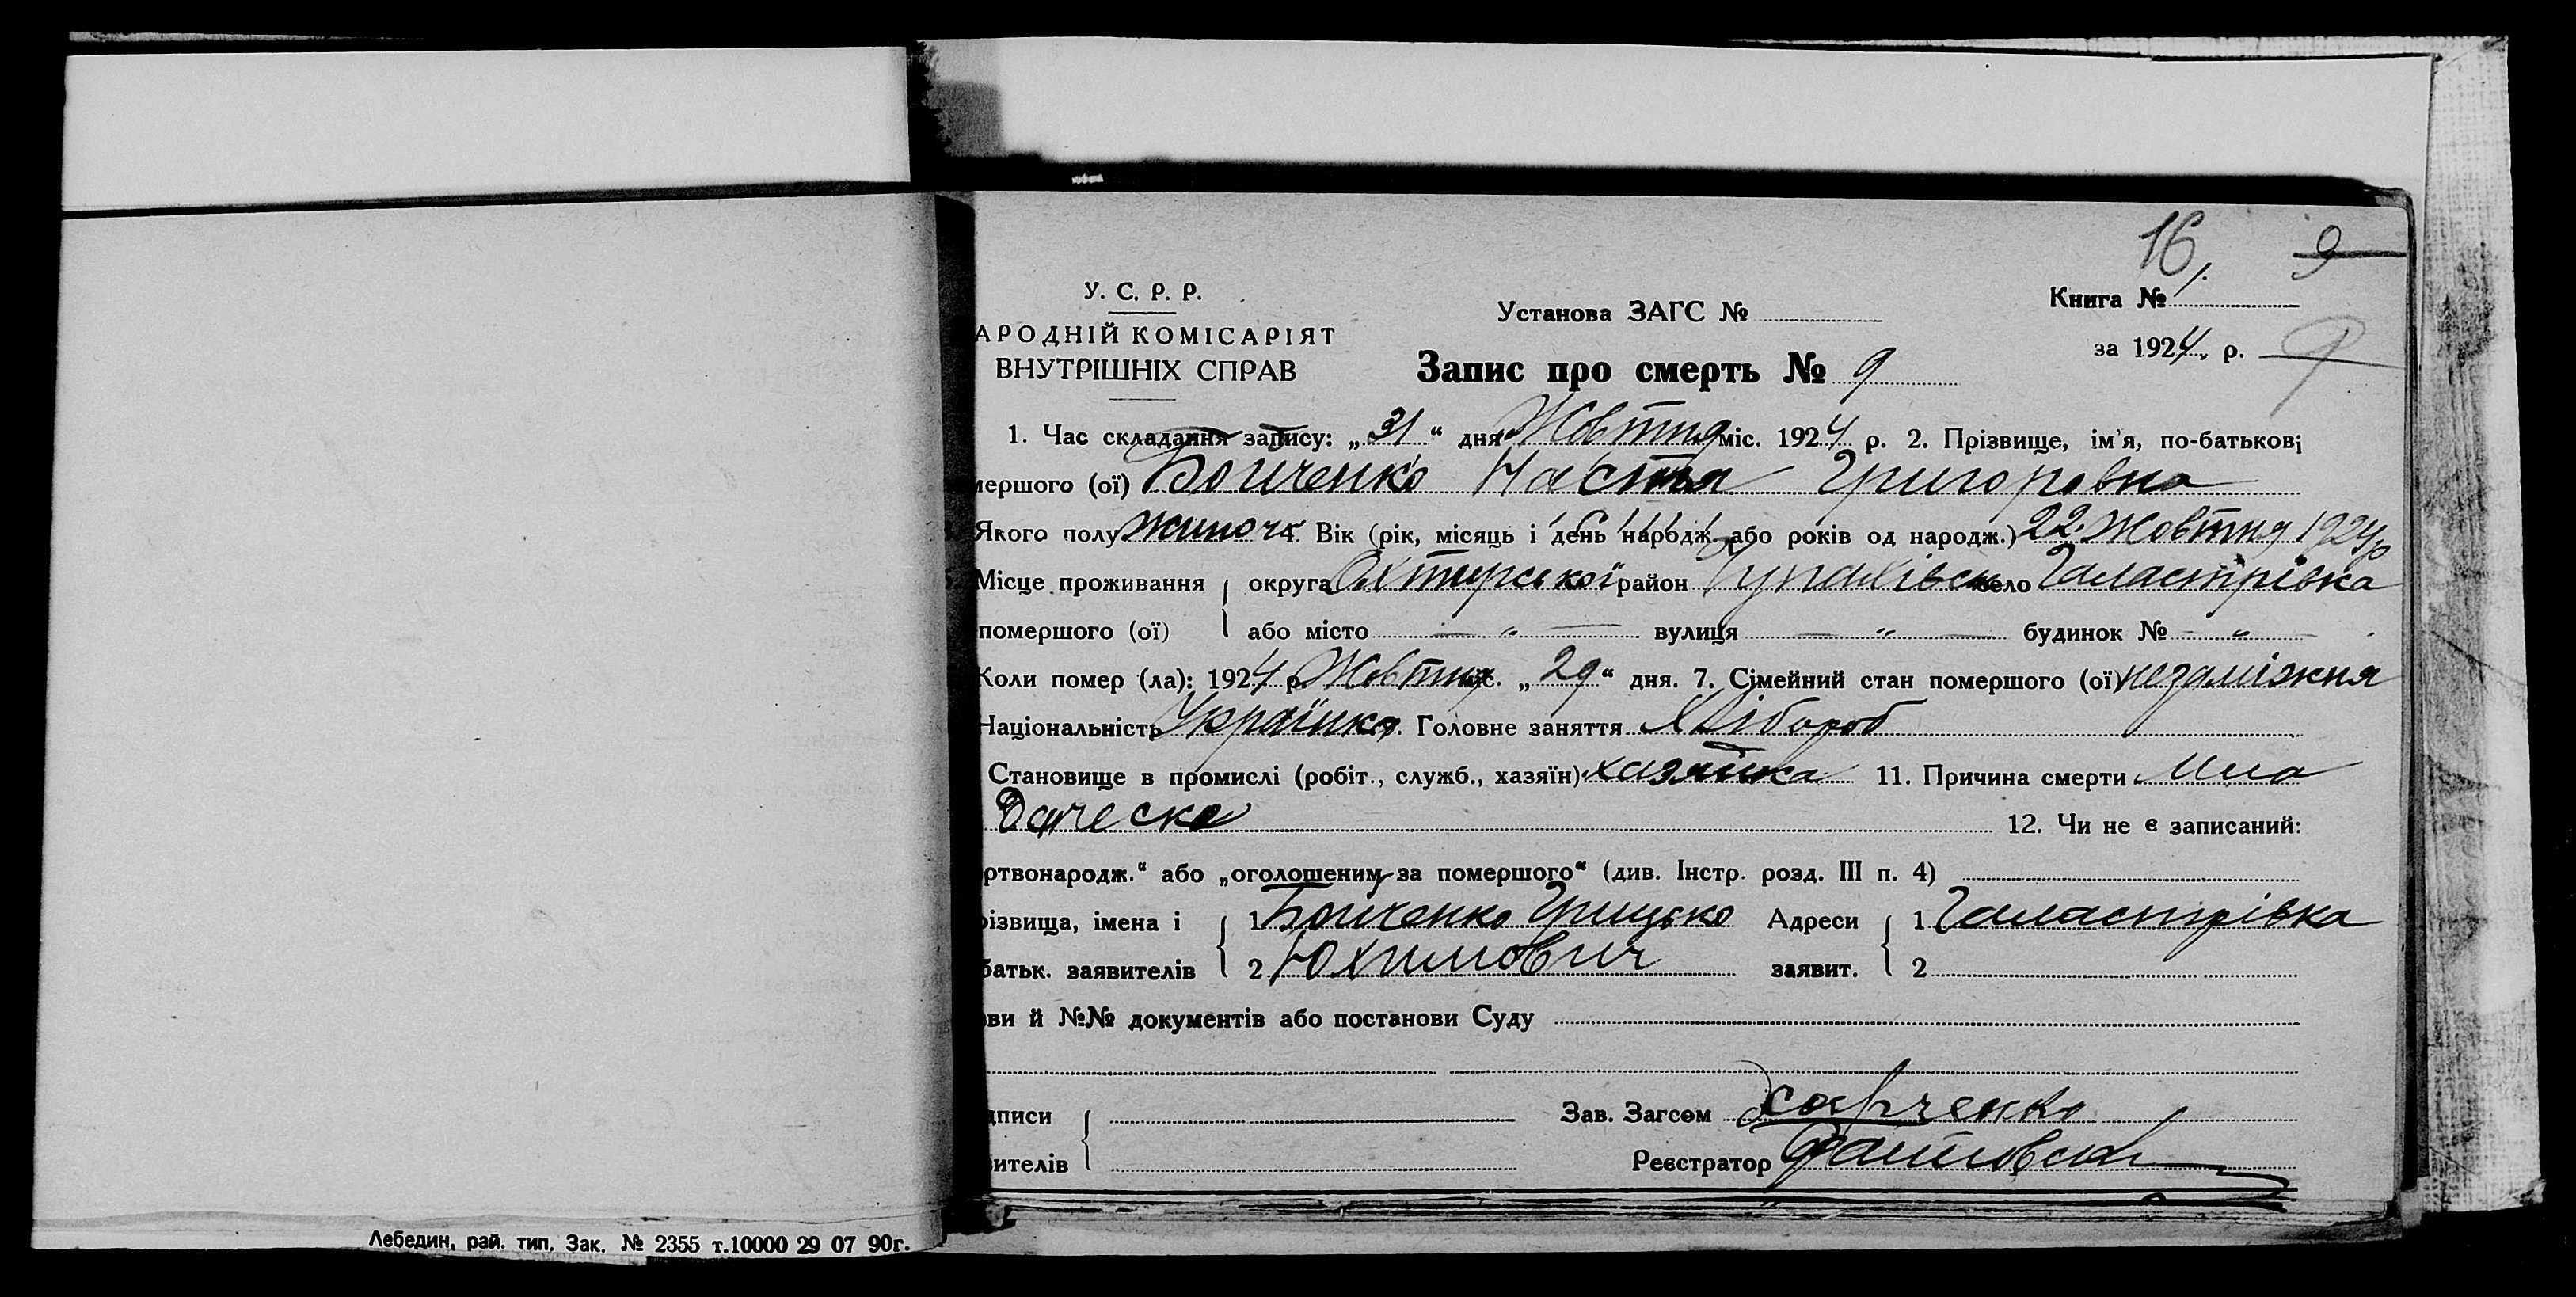 16 9
У. С. Р. Р.
АРОДНІЙ КОМІСАРІЯТ
ВНУТРІШНІХ СПРАВ
Установа ЗАГС №
Книга № 1.
за 1924 р. 9
Запис про смерть № 9
1. Час складання запису: „31“ дня Жовтня міс. 1924 р. 2. Прізвище, ім'я, по-батькові
мершого (ої) Бойченко Настя Григоровна
Якого полу жіноч. 4. Вік (рік, місяць і день народж. або років од народж.) 22. Жовтня 1924р
Місце проживання округа Охтирської район село Галастрівка
помершого (ої) або місто — „ — вулиця — „ — будинок № - „ -
Коли помер (ла): 1924 р. Жовтня міс. „29“ дня. 7. Сімейний стан помершого (ої) незаміжня
Національність Українка. Головне заняття Хлібороб
Становище в промислі (робіт., служб., хазяїн) хазяйка 11. Причина смерти Мла
даческа 12. Чи не є записаний:
ртвонародж.“ або „оголошеним за помершого“ (див. Інстр. розд. III п. 4)
різвища, імена і 1 Бойченко Грицько Адреси 1 Галастрівка
батьк. заявителів 2 Юхимович заявит. 2
ви й №№ документів або постанови Суду
дписи Зав. Загсом Харченко
вителів Реєстратор
Лебедин, рай. тип. Зак. № 2355 т.10000 29 07 90г.